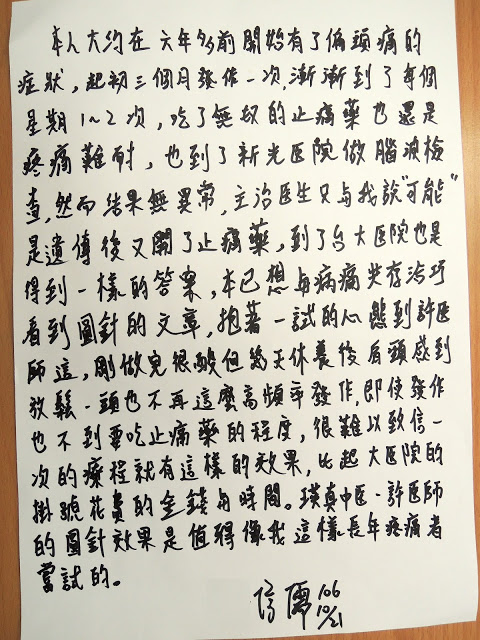 本人大約在六年多前開始有了偏頭痛的
症狀，起初三個月發作一次，漸漸到了每個
星期1~2次，吃了無數的止痛藥也還是
疼痛難耐，也到了新光医院做腦波檢
查，然而結果無異常，主治医生只与我說"可能"
是遺傳後又開了止痛藥，到了台大医院也是
得到一樣的答案，本已想与病痛共存治巧
看到圓針的文章，抱著一試的心態到許医
師這，剛做完很酸但幾天休養後肩頸感到
放鬆，頭也不再這麼高頻率發作，即使發作
也不到要吃止痛藥的程度，很難以致信一
次的療程就有這樣的效果，比起大医院的
掛號花費的金錢与時間。瑛真中医，許医師
的圓針效果是值得像我這樣長年疼痛者
嘗試的。
106
10/21